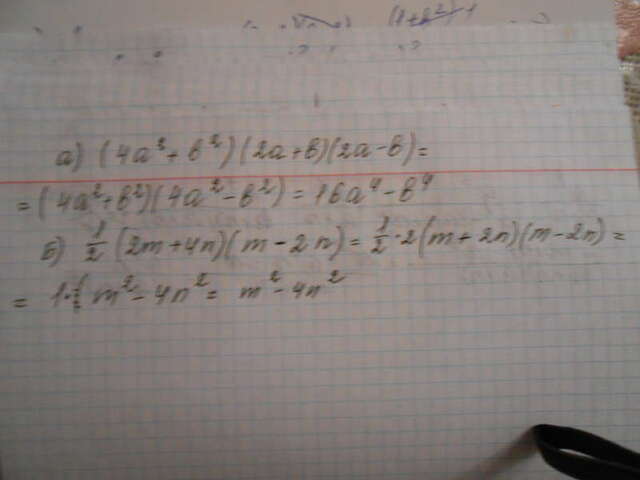 а) (4a² + b²)(2a + b)(2a - b) =
= (4a² + b²)(4a² - b²) = 16a⁴ - b⁴
б) 1/2 (2m + 4n)(m - 2n) = 1/2 · 2(m + 2n)(m - 2n) =
= m² - 4n² = m² - 4n²